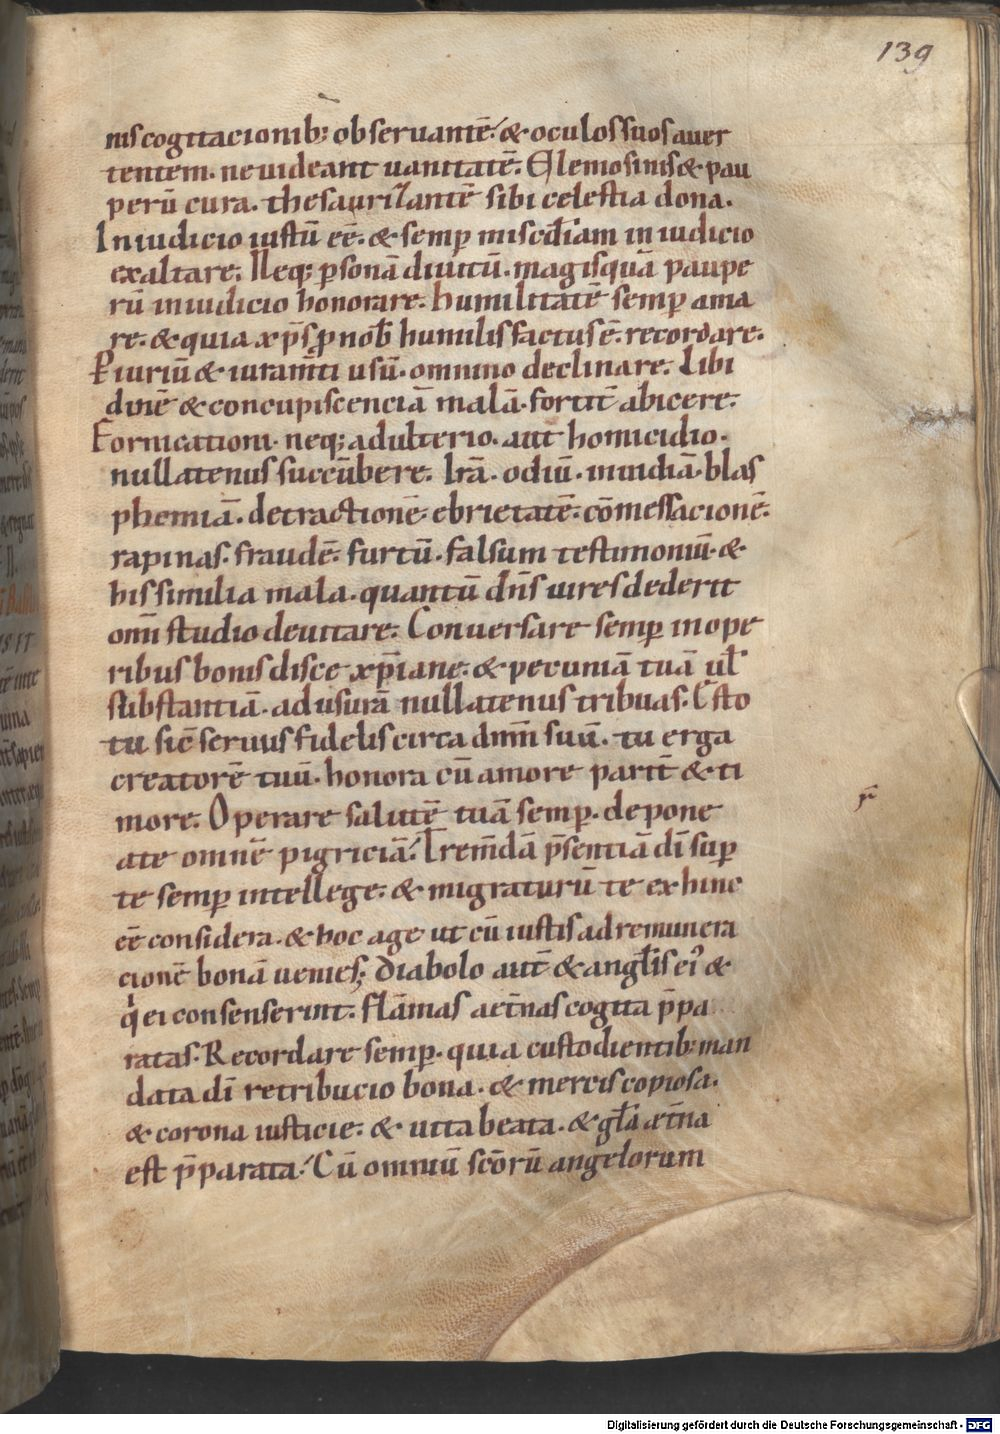 139
nis cogitacionib; observantē. & oculos suos aver
tentem. ne videant vanitatē. Elemosinis & pau
perū cura. thesaurizantē sibi celestia dona.
In iudicio iustū eē. & semp̄ misc̄diam in iudicio
exaltare. Neq; p̱sonā divitū. magis quā paupe
rū in iudicio honorare. humilitatē semp̄ ama
re. & quia xp̄s p̱ nob̄ humilis factus ē. recordare.
P̱iuriū & iuram̄ti usū. omnino declinare. Libi
dinē & concupiscenciā malā. fortit̄ abicere.
Fornicationi. neq; adulterio. aut homicidio.
nullatenus succūbere. Irā. odiū. invidiā. blas
phemiā. detractionē. ebrietatē. cōmessacionē.
rapinas. fraudē. furtū. falsum testimoniū. &
his similia mala. quantū dn̄s vires dederit
om̄i studio devitare. Conversare semp̄ in ope
ribus bonis disce xp̄iane. & pecuniā tuā ul̄
substantiā. ad usurā nullatenus tribuas. Esto
tu sic̄ servus fidelis circa dn̄m suū. tu erga
creatorē tuū. honora cū amore parit̄ & ti
more. Operare salutē tuā semp̄. depone
a te omnē pigriciā. Trem̄dā p̄sentiā dī sup̄
te semp̄ intellege. & migraturū te ex hinc
eē considera. & hoc age ut cū iustis ad remunera
cionē bonā venies; diabolo aut̄ & angl̄is ei' &
q̇ ei consenserint. flāmas aet̄nas cogita p̄pa
ratas. Recordare semp̄. quia custodientib; man
data dī retribucio bona. & mercis copiosa.
& corona iusticie. & vita beata. & gl̄a aet̄na
est p̄parata. Cū omniū sc̄orū angelorum
Digitalisierung gefördert durch die Deutsche Forschungsgemeinschaft - DFG